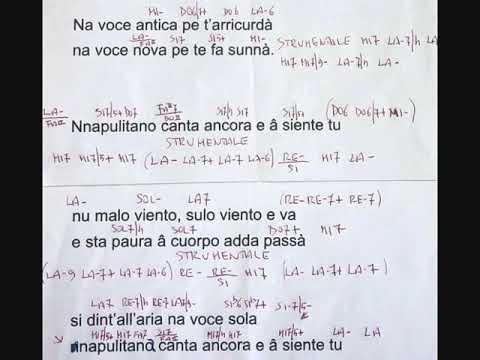 MI- DO6/7+ DO6 LA-6
Na voce antica pe t'arricurdà
LA-/FA# SI7 SI5+ MI-
na voce nova pe te fa sunnà. STRUMENTALE MI7 LA-7/4 LA-
MI7 MI7/9- LA-7/4 LA-
LA-/FA# SI7/5+ DO7 SI7/4 SI7 SI7/5+ (DO6 DO6/7+ MI-)
Nnapulitano canta ancora e â siente tu
STRUMENTALE
MI7 MI7/5+ MI7 (LA- LA-7+ LA-7 LA-6) RE-/SI MI7 LA-
LA- SOL- LA7 (RE- RE-7+ RE-7)
nu malo viento, sulo viento e va
SOL7/4 SOL7 DO7+ MI7
e sta paura â cuorpo adda passà
STRUMENTALE
(LA-9 LA-7+ LA-7 LA-6) RE- RE-/SI MI7 (LA- LA-7+ LA-7)
LA7 RE-7/4 RE-7 LA7/9- SI-7/5-
si dint'all'aria na voce sola
MI7/5+ MI7 MI7/4 MI7 MI7/5+ LA- LA
nnapulitana canta ancora e â siente tu